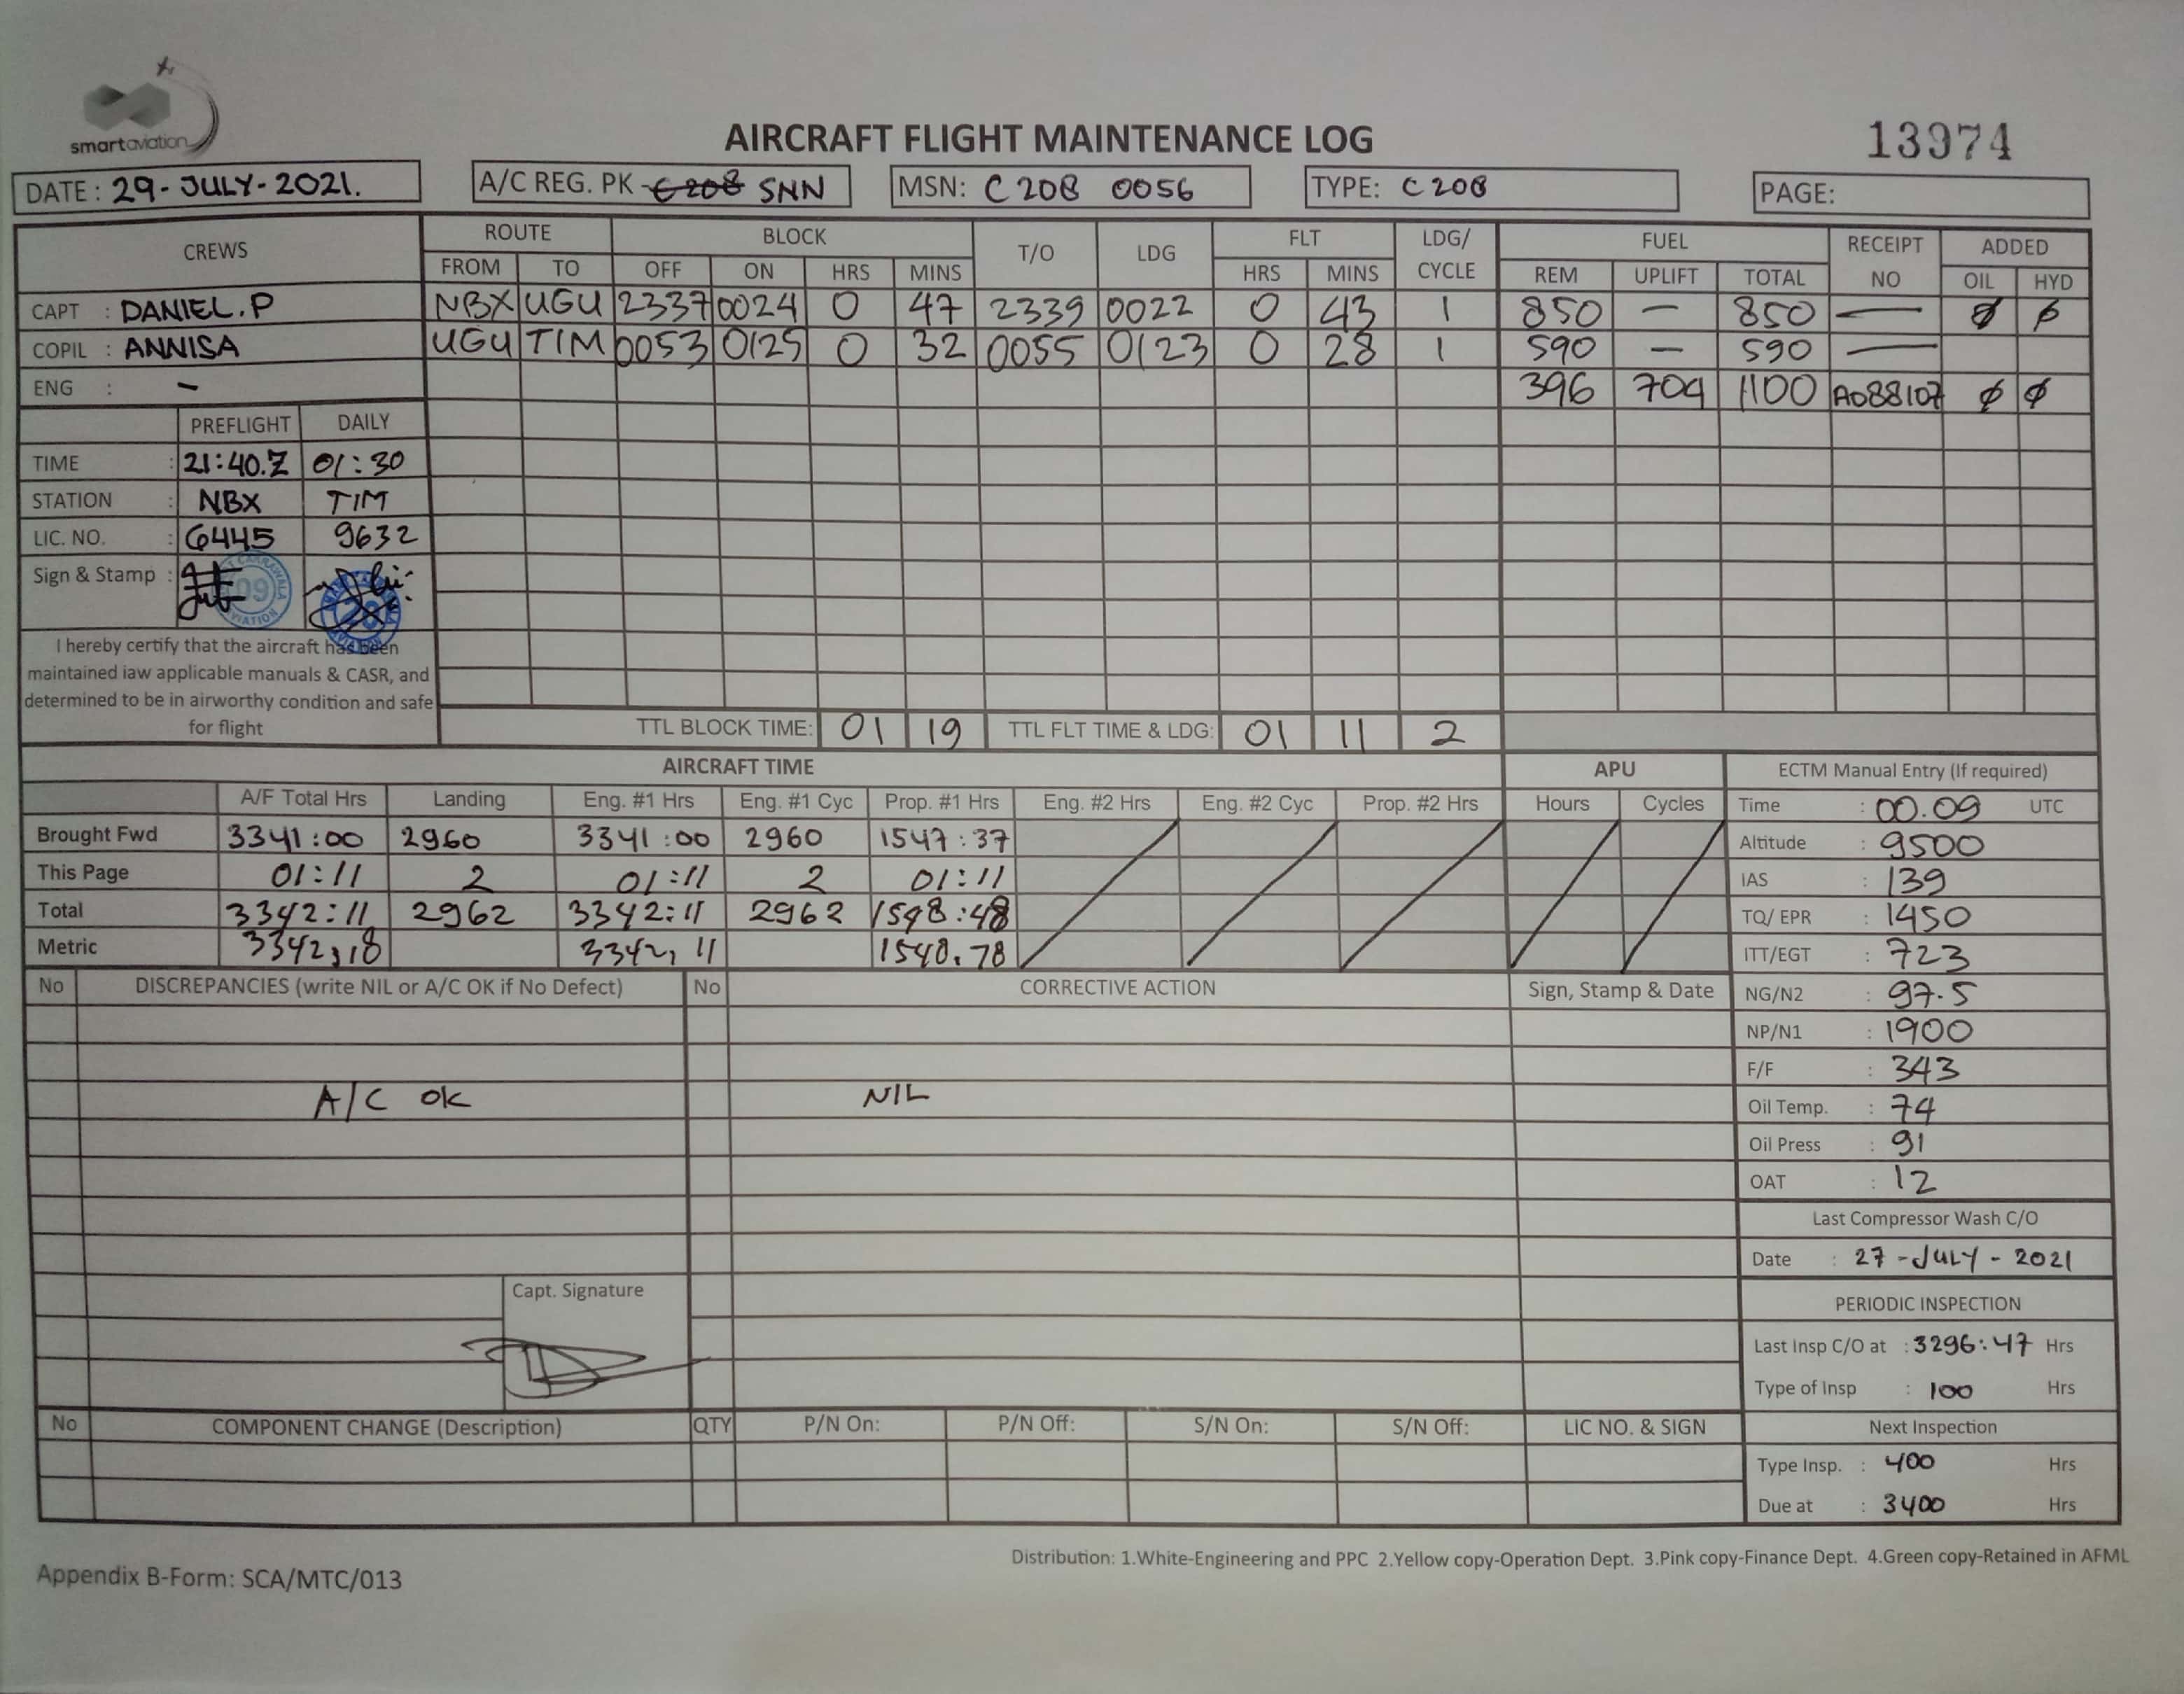 smartaviation
AIRCRAFT FLIGHT MAINTENANCE LOG
13974
DATE : 29-JULY-2021.
A/C REG. PK-C208 SNN
MSN: C208 0056
TYPE: C208
PAGE:
CREWS ROUTE BLOCK T/O LDG FLT LDG/ CYCLE FUEL RECEIPT NO ADDED
FROM TO OFF ON HRS MINS HRS MINS REM UPLIFT TOTAL OIL HYD
CAPT : DANIEL.P NBX UGU 2337 0024 0 47 2339 0022 0 43 1 850 — 850 — ∅ ∅
COPIL : ANNISA UGU TIM 0053 0125 0 32 0055 0123 0 28 1 590 — 590 —
ENG : - 396 704 1100 A088107 ∅ ∅
PREFLIGHT DAILY
TIME : 21:40.Z 01:30
STATION : NBX TIM
LIC. NO. : 6445 9632
Sign & Stamp :
I hereby certify that the aircraft has been
maintained iaw applicable manuals & CASR, and
determined to be in airworthy condition and safe
for flight
TTL BLOCK TIME: 01 19 TTL FLT TIME & LDG: 01 11 2
AIRCRAFT TIME APU
A/F Total Hrs Landing Eng. #1 Hrs Eng. #1 Cyc Prop. #1 Hrs Eng. #2 Hrs Eng. #2 Cyc Prop. #2 Hrs Hours Cycles
Brought Fwd 3341:00 2960 3341:00 2960 1547:37
This Page 01:11 2 01:11 2 01:11
Total 3342:11 2962 3342:11 2962 1548:48
Metric 3342,18 3342,11 1548.78
ECTM Manual Entry (If required)
Time : 00.09 UTC
Altitude : 9500
IAS : 139
TQ/ EPR : 1450
ITT/EGT : 723
NG/N2 : 97.5
NP/N1 : 1900
F/F : 343
Oil Temp. : 74
Oil Press : 91
OAT : 12
Last Compressor Wash C/O
Date : 27-JULY-2021
PERIODIC INSPECTION
Last Insp C/O at : 3296:47 Hrs
Type of Insp : 100 Hrs
Next Inspection
Type Insp. : 400 Hrs
Due at : 3400 Hrs
No DISCREPANCIES (write NIL or A/C OK if No Defect) No CORRECTIVE ACTION Sign, Stamp & Date
A/C OK NIL
Capt. Signature
No COMPONENT CHANGE (Description) QTY P/N On: P/N Off: S/N On: S/N Off: LIC NO. & SIGN
Distribution: 1.White-Engineering and PPC 2.Yellow copy-Operation Dept. 3.Pink copy-Finance Dept. 4.Green copy-Retained in AFML
Appendix B-Form: SCA/MTC/013